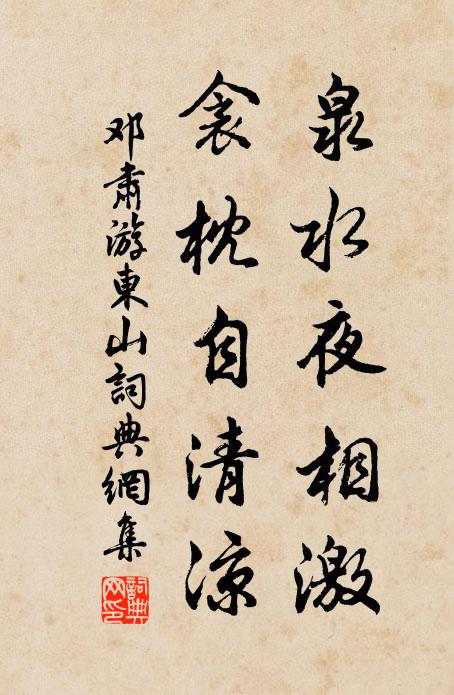 泉水夜相激
衾枕自清凉
邓肃游東山詞典網集
詞典網印